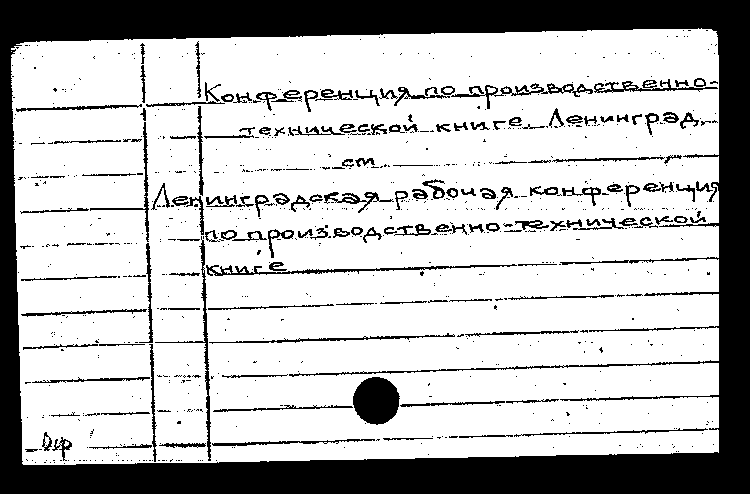 Конференция по производственно-
технической книге. Ленинград.
см
Ленинградская рабочая конференция
по производственно-технической
книге